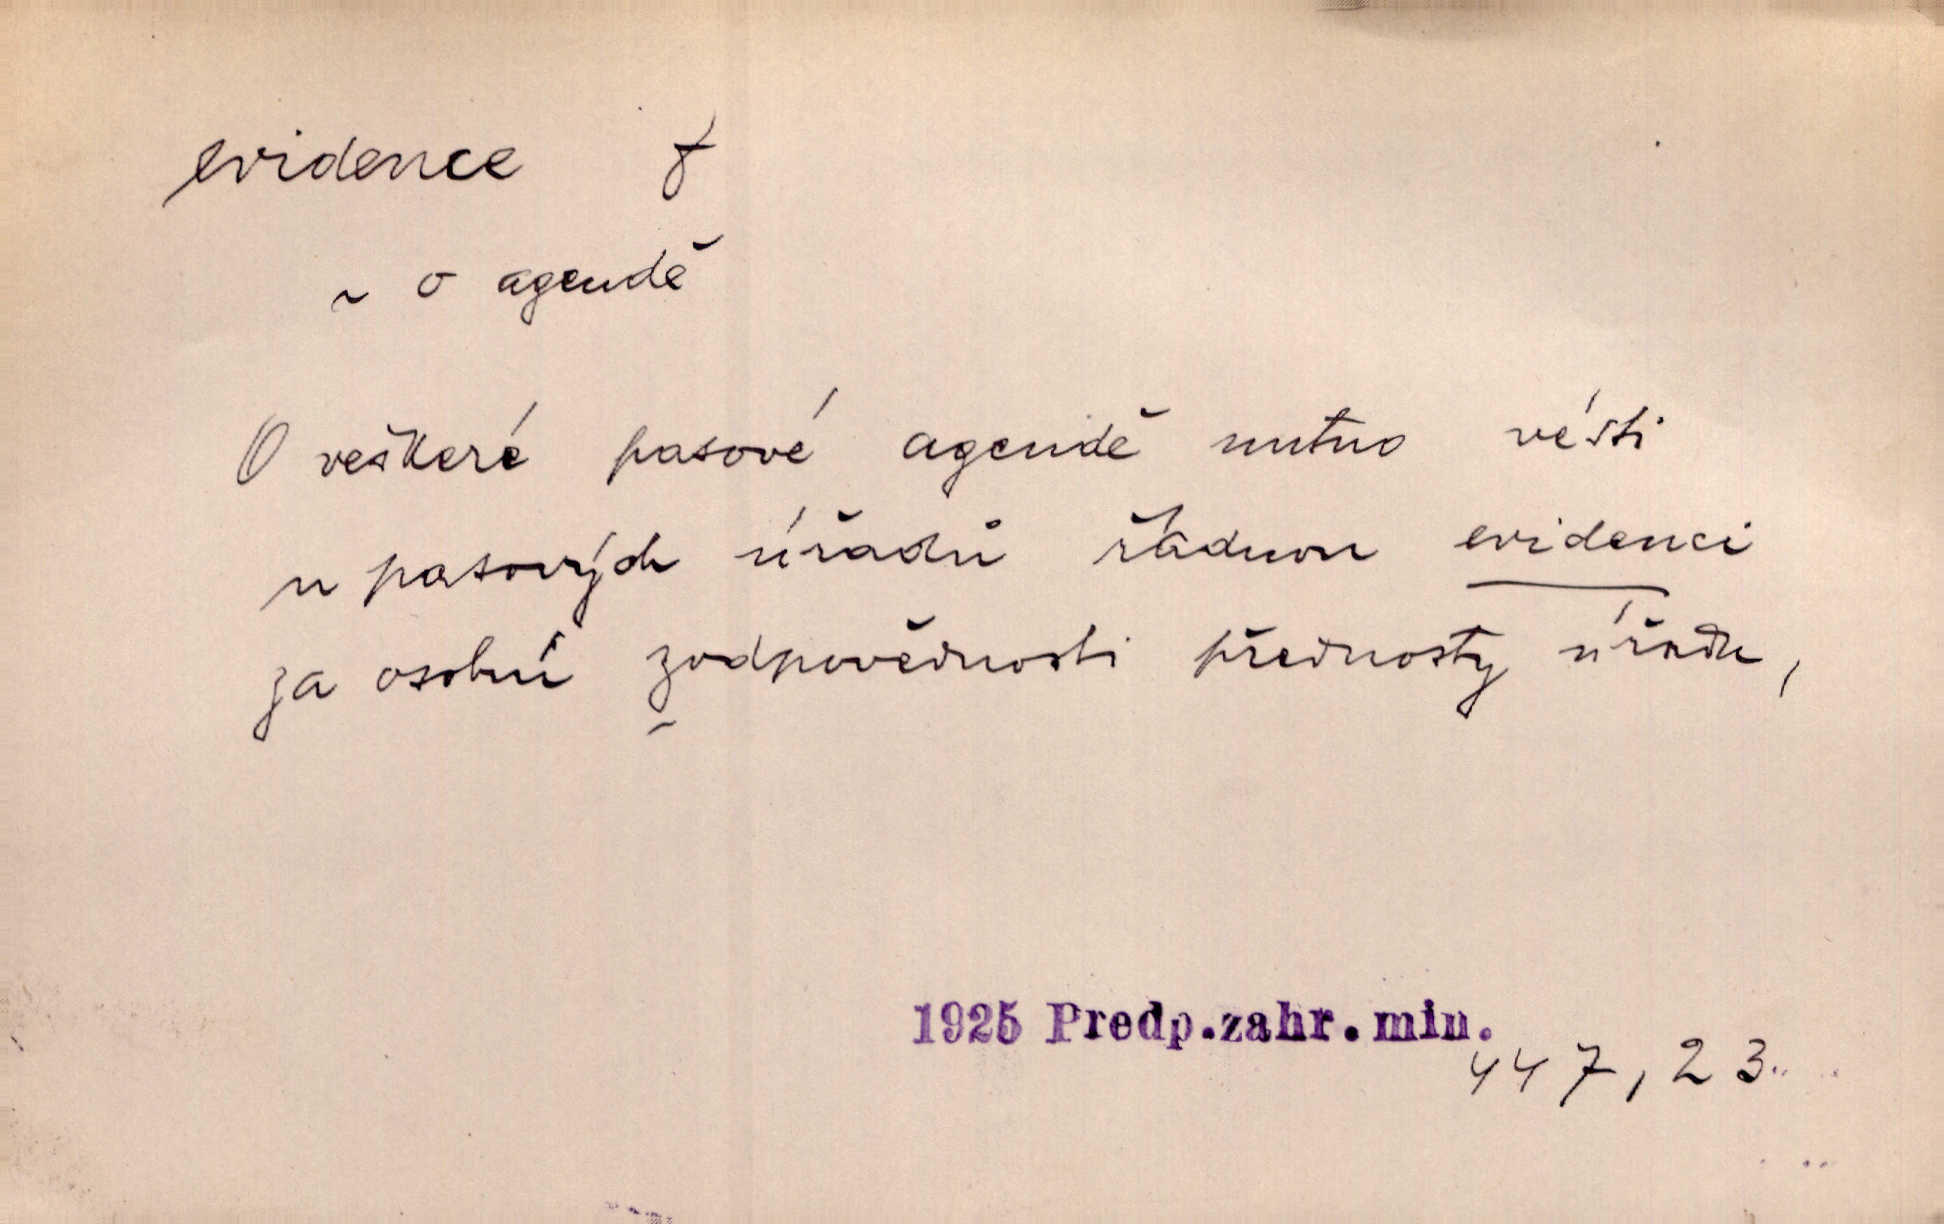 evidence f
~ o agendě
O veškeré pasové agendě nutno vésti
u pasových úřadů řádnou evidenci
za osobní zodpovědnosti přednosty úřadu,
1925 Predp.zahr.min.
447,23.